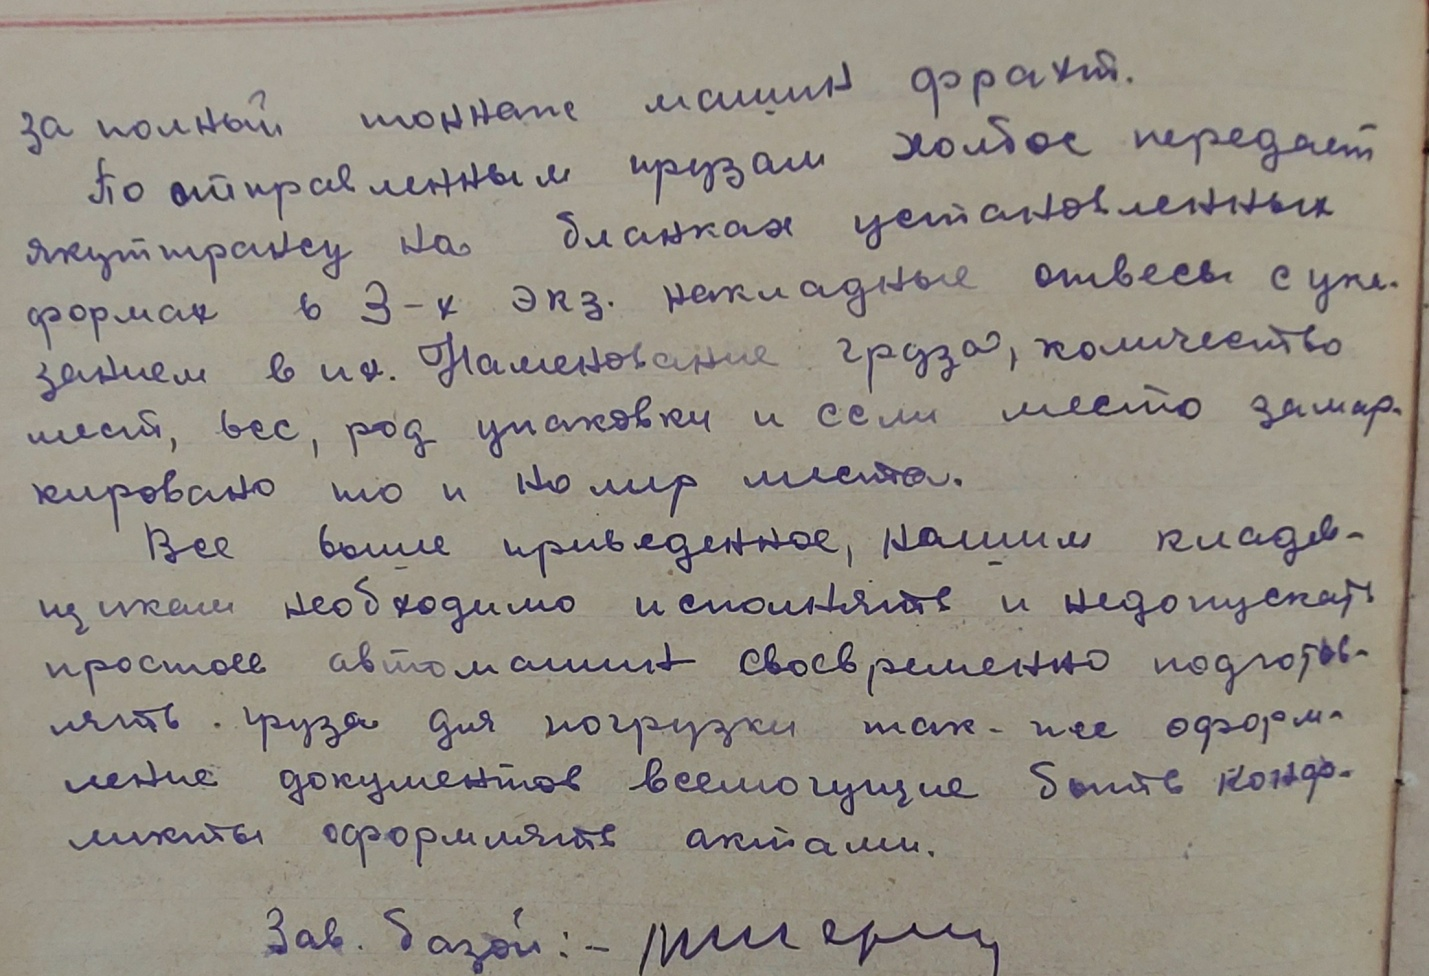 за полный тоннаж машин фрахт.
По отправленным грузам холбос передает
якуттрансу на бланках установленных
формах в 3-х экз. накладные отвесы с ука-
занием в их. Наменование груза, количество
мест, вес, род упаковки и если место замар-
кировано то и номир места.
Все выше приведенное, нашим кладов-
щикам необходимо исполнять и недопускать
простоев автомашин своевременно подготов-
лять груза для погрузки так-же оформ-
ление документов всемогущие быть конф-
ликты оформлять актами.
Зав. базой:-